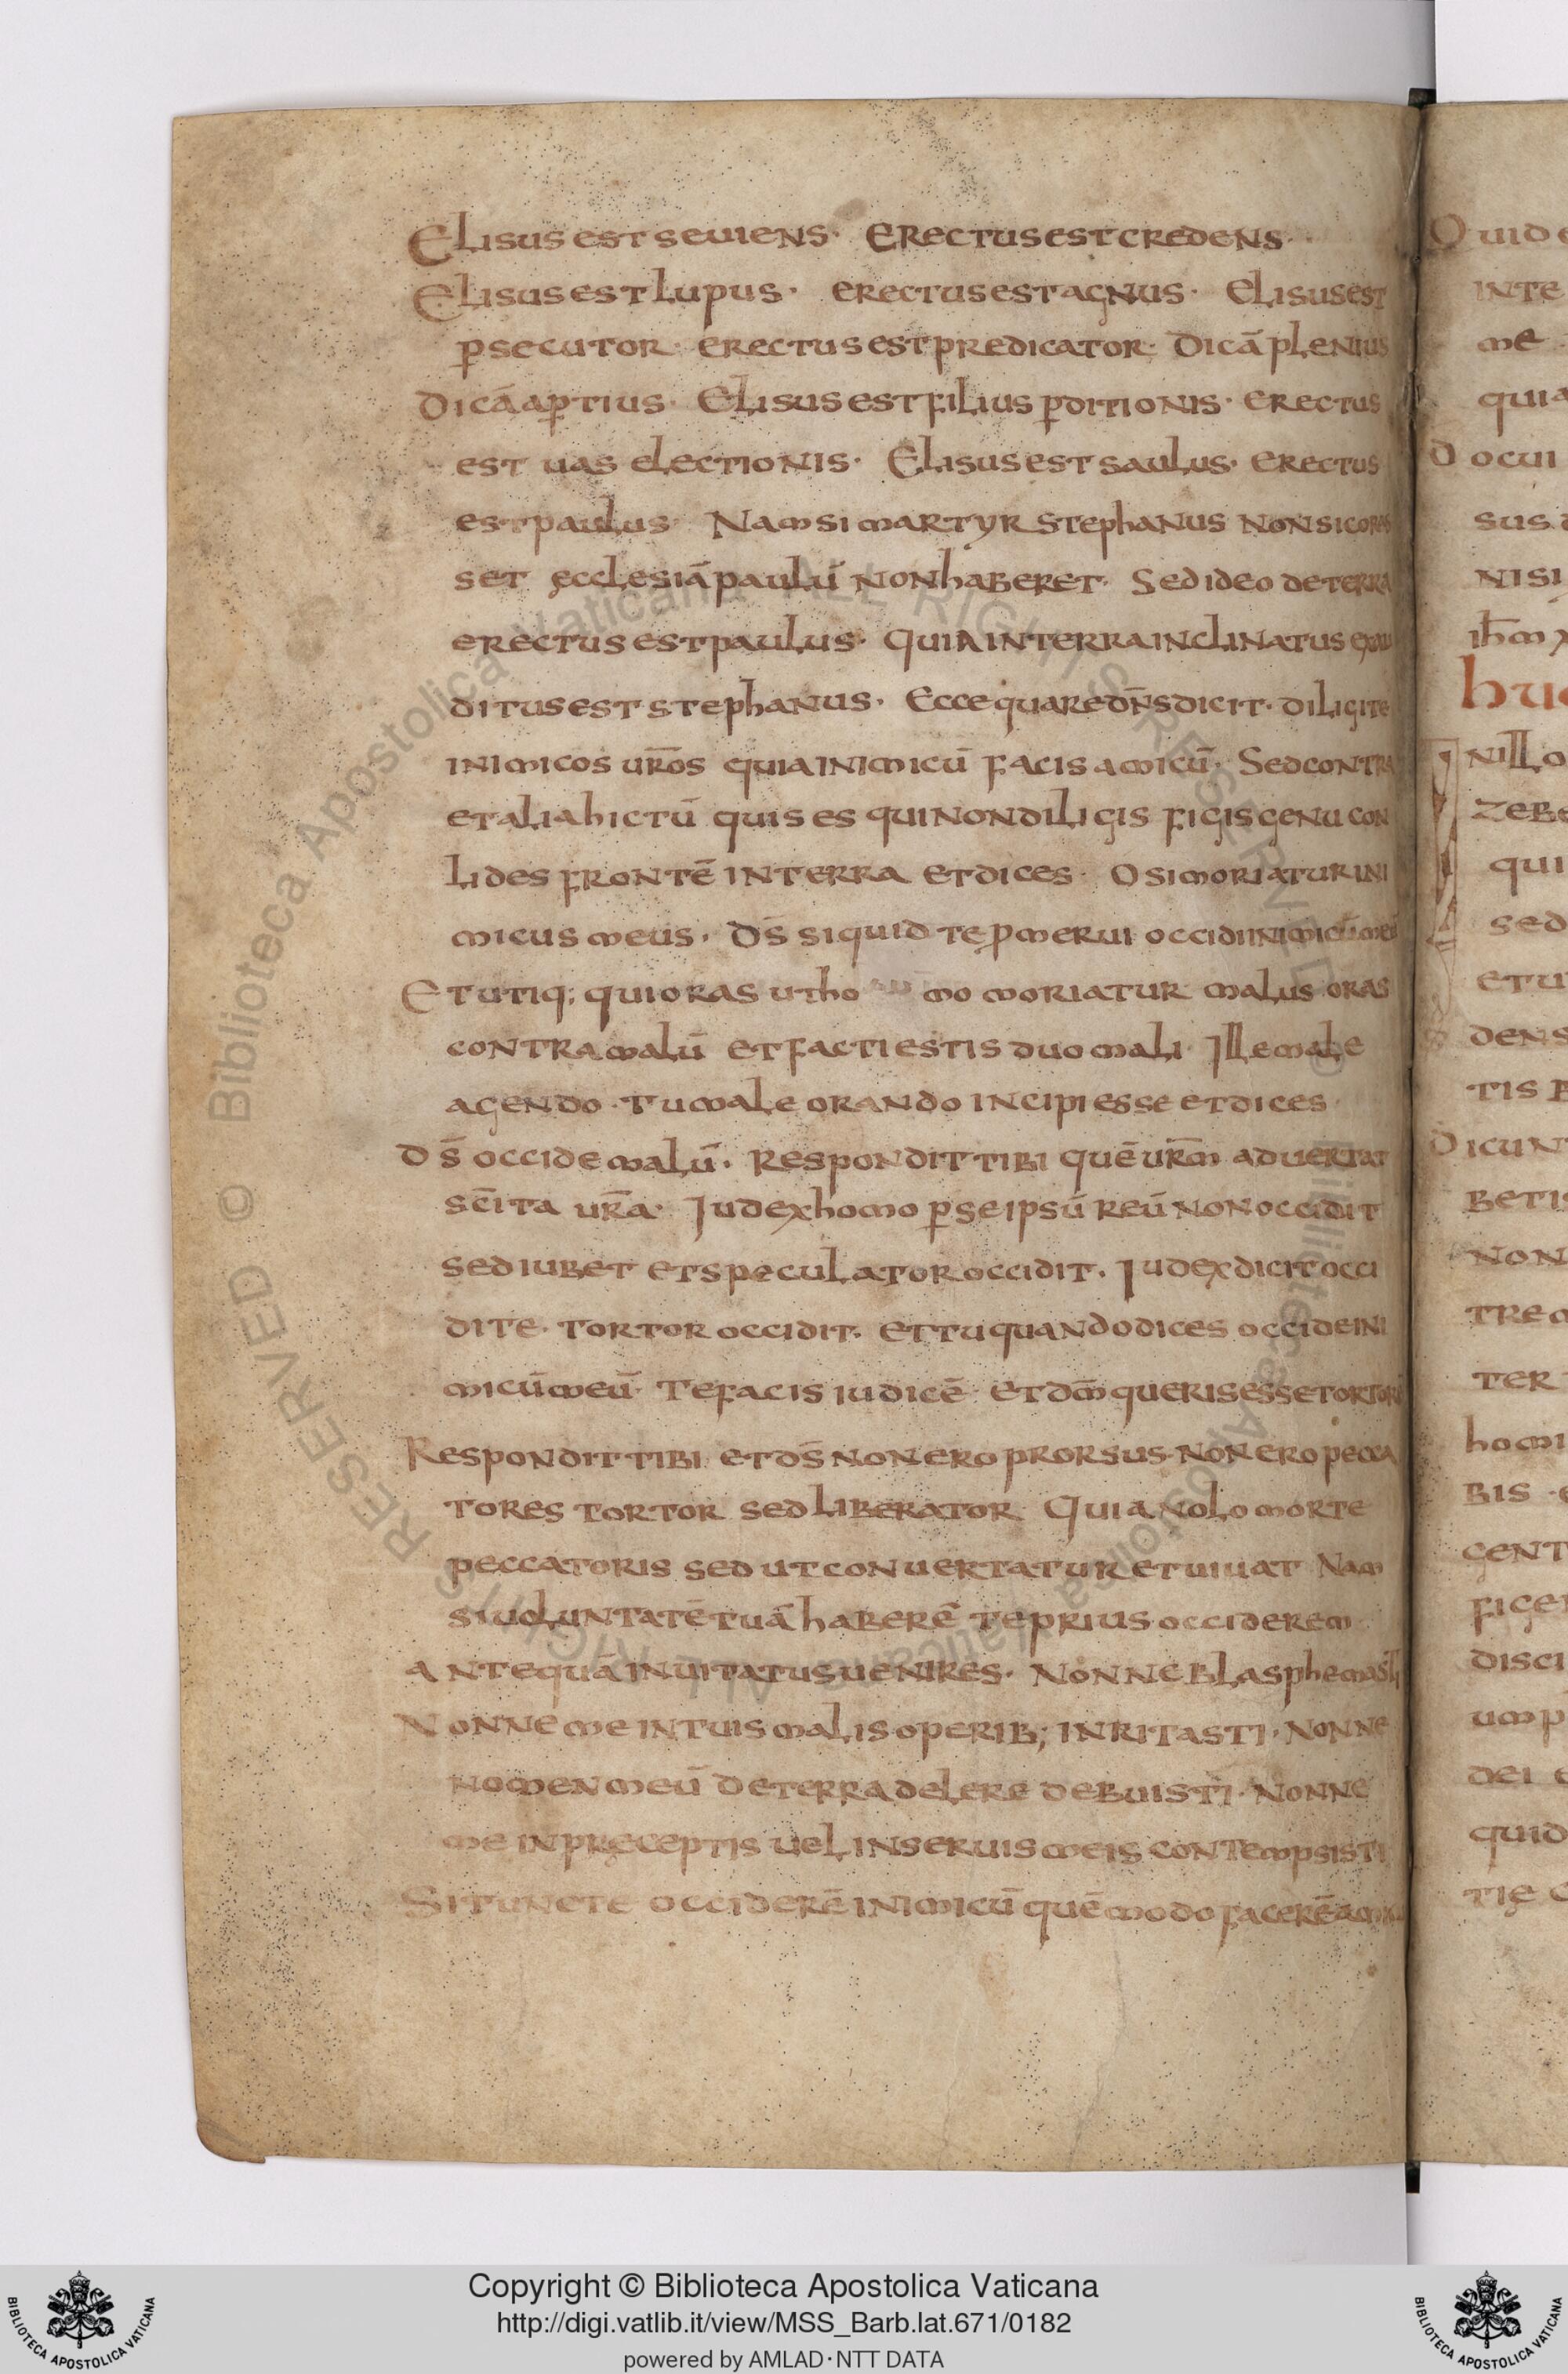 Elisus est seuiens· Erectus est credens·
Elisus est lupus· erectus est agnus· Elisus est
p̄secutor· erectus est predicator· Dicā plenius
Dicā ap̄tius· Elisus est filius p̄ditionis· erectus
est uas electionis· Elisus est saulus· erectus
est paulus· Nam si martyr stephanus non sic oras
set ęcclesiā paulū non haberet· Sed ideo de terra
erectus est paulus· quia in terra inclinatus exau
ditus est stephanus· Ecce quare dn̄s dicit· diligite
inimicos ur̄os quia inimicū facis amicū· Sed contra
et alia hic tū quis es qui non diligis figis genu con
lides frontē in terra et dices· O si moriatur ini
micus meus· Ds̄ si quid te promerui occidi inimicū meū
Et utiq; qui oras ut homo moriatur malus oras
contra malū et facti estis duo mali· Ille male
agendo· tu male orando incipi esse et dices·
Ds̄ occide malū· Respondit tibi quē ur̄m aduertat
sc̄ita ur̄a· Judex homo p̄ se ipsū reū non occidit
sed iubet et speculator occidit· Judex dicit occi
dite· tortor occidit· et tu quando dices occide ini
micū meū· Te facis iudicē et dm̄ queris esse tortorē
Respondit tibi et ds̄ non ero prorsus· non ero pecca
tores tortor sed liberator· Quia nolo morte
peccatoris sed ut conuertatur et uiuat Nam
si uoluntatē tuā haberē te prius occiderem
antequā inuitatus uenires· Nonne blasphemasti
Nonne me in tuis malis operib; inritasti· Nonne
nomen meū de terra delere debuisti· Nonne
me in pręceptis uel in seruis meis contempsisti
Si tunc te occiderē inimicū quē modo facerē amicū
Quid e
inte
me
quia
Docui
sus d
nisi
ih̄m
hu
nillo
zebe
qui
sed
etu
dens
tis
Dicunt
betis
non
tre
ter
homi
bis ·
gent
fice
disci
um p
dei e
quid
Copyright © Biblioteca Apostolica Vaticana
http://digi.vatlib.it/view/MSS_Barb.lat.671/0182
powered by AMLAD·NTT DATA
BIBLIOTECA APOSTOLICA VATICANA
BIBLIOTECA APOSTOLICA VATICANA